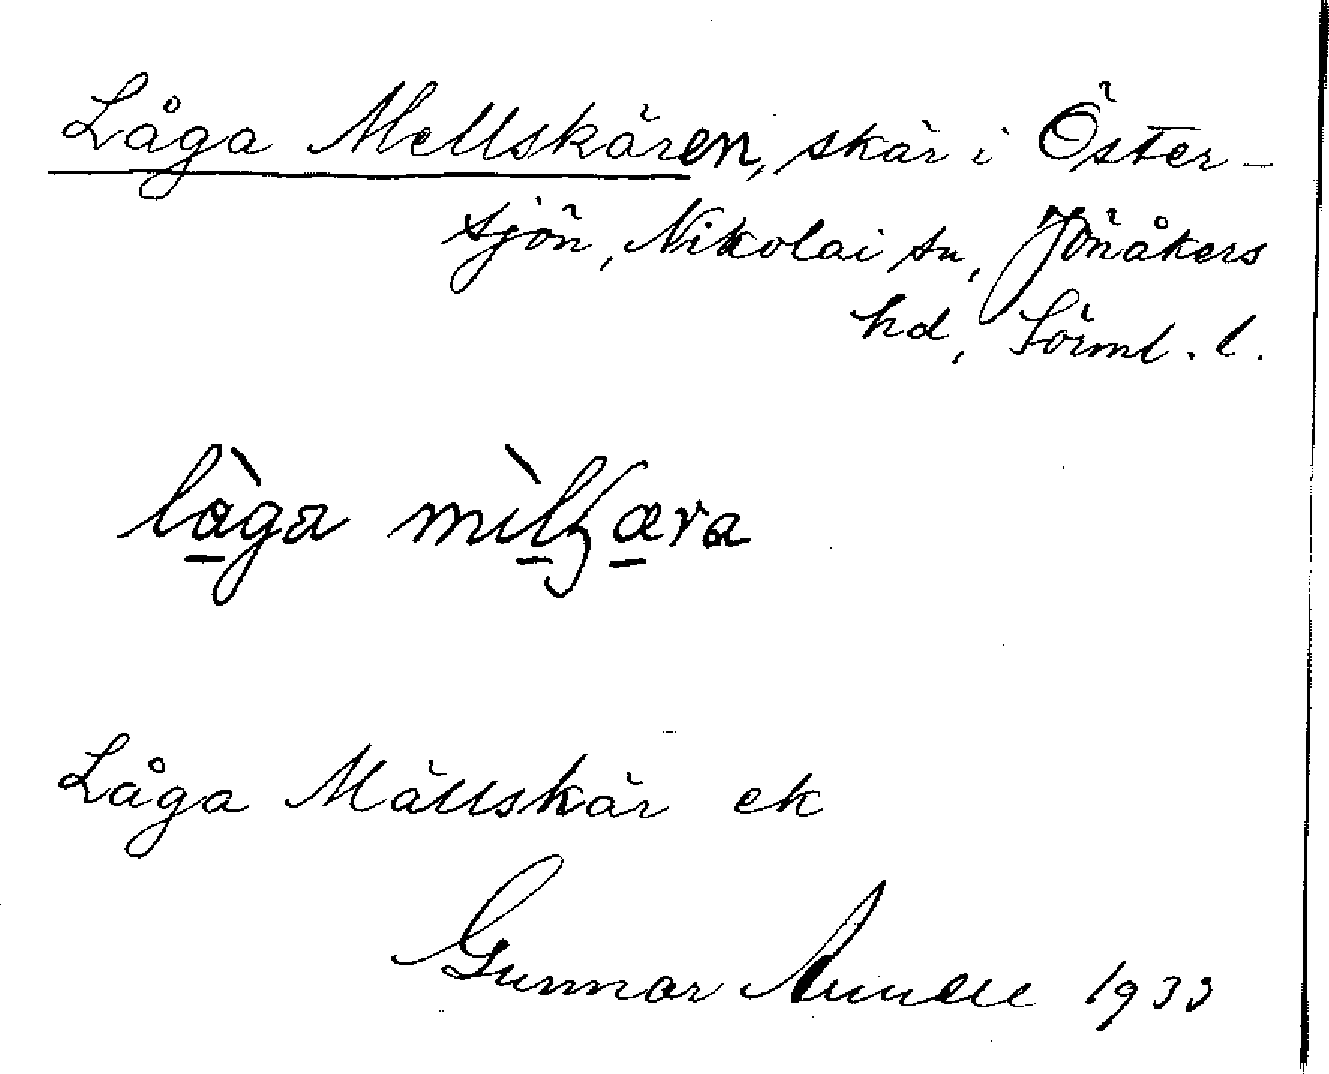 Låga Mellskären, skär i Öster-
sjön, Nikolai sn, Jönåkers
hd, Sörml. l.
làga
Låga Mällskär ek
Gunnar 1933